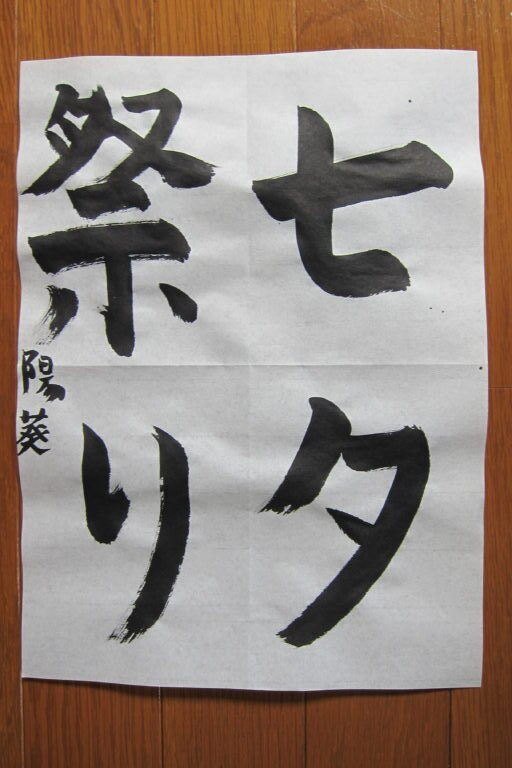 七夕
祭り
陽葵